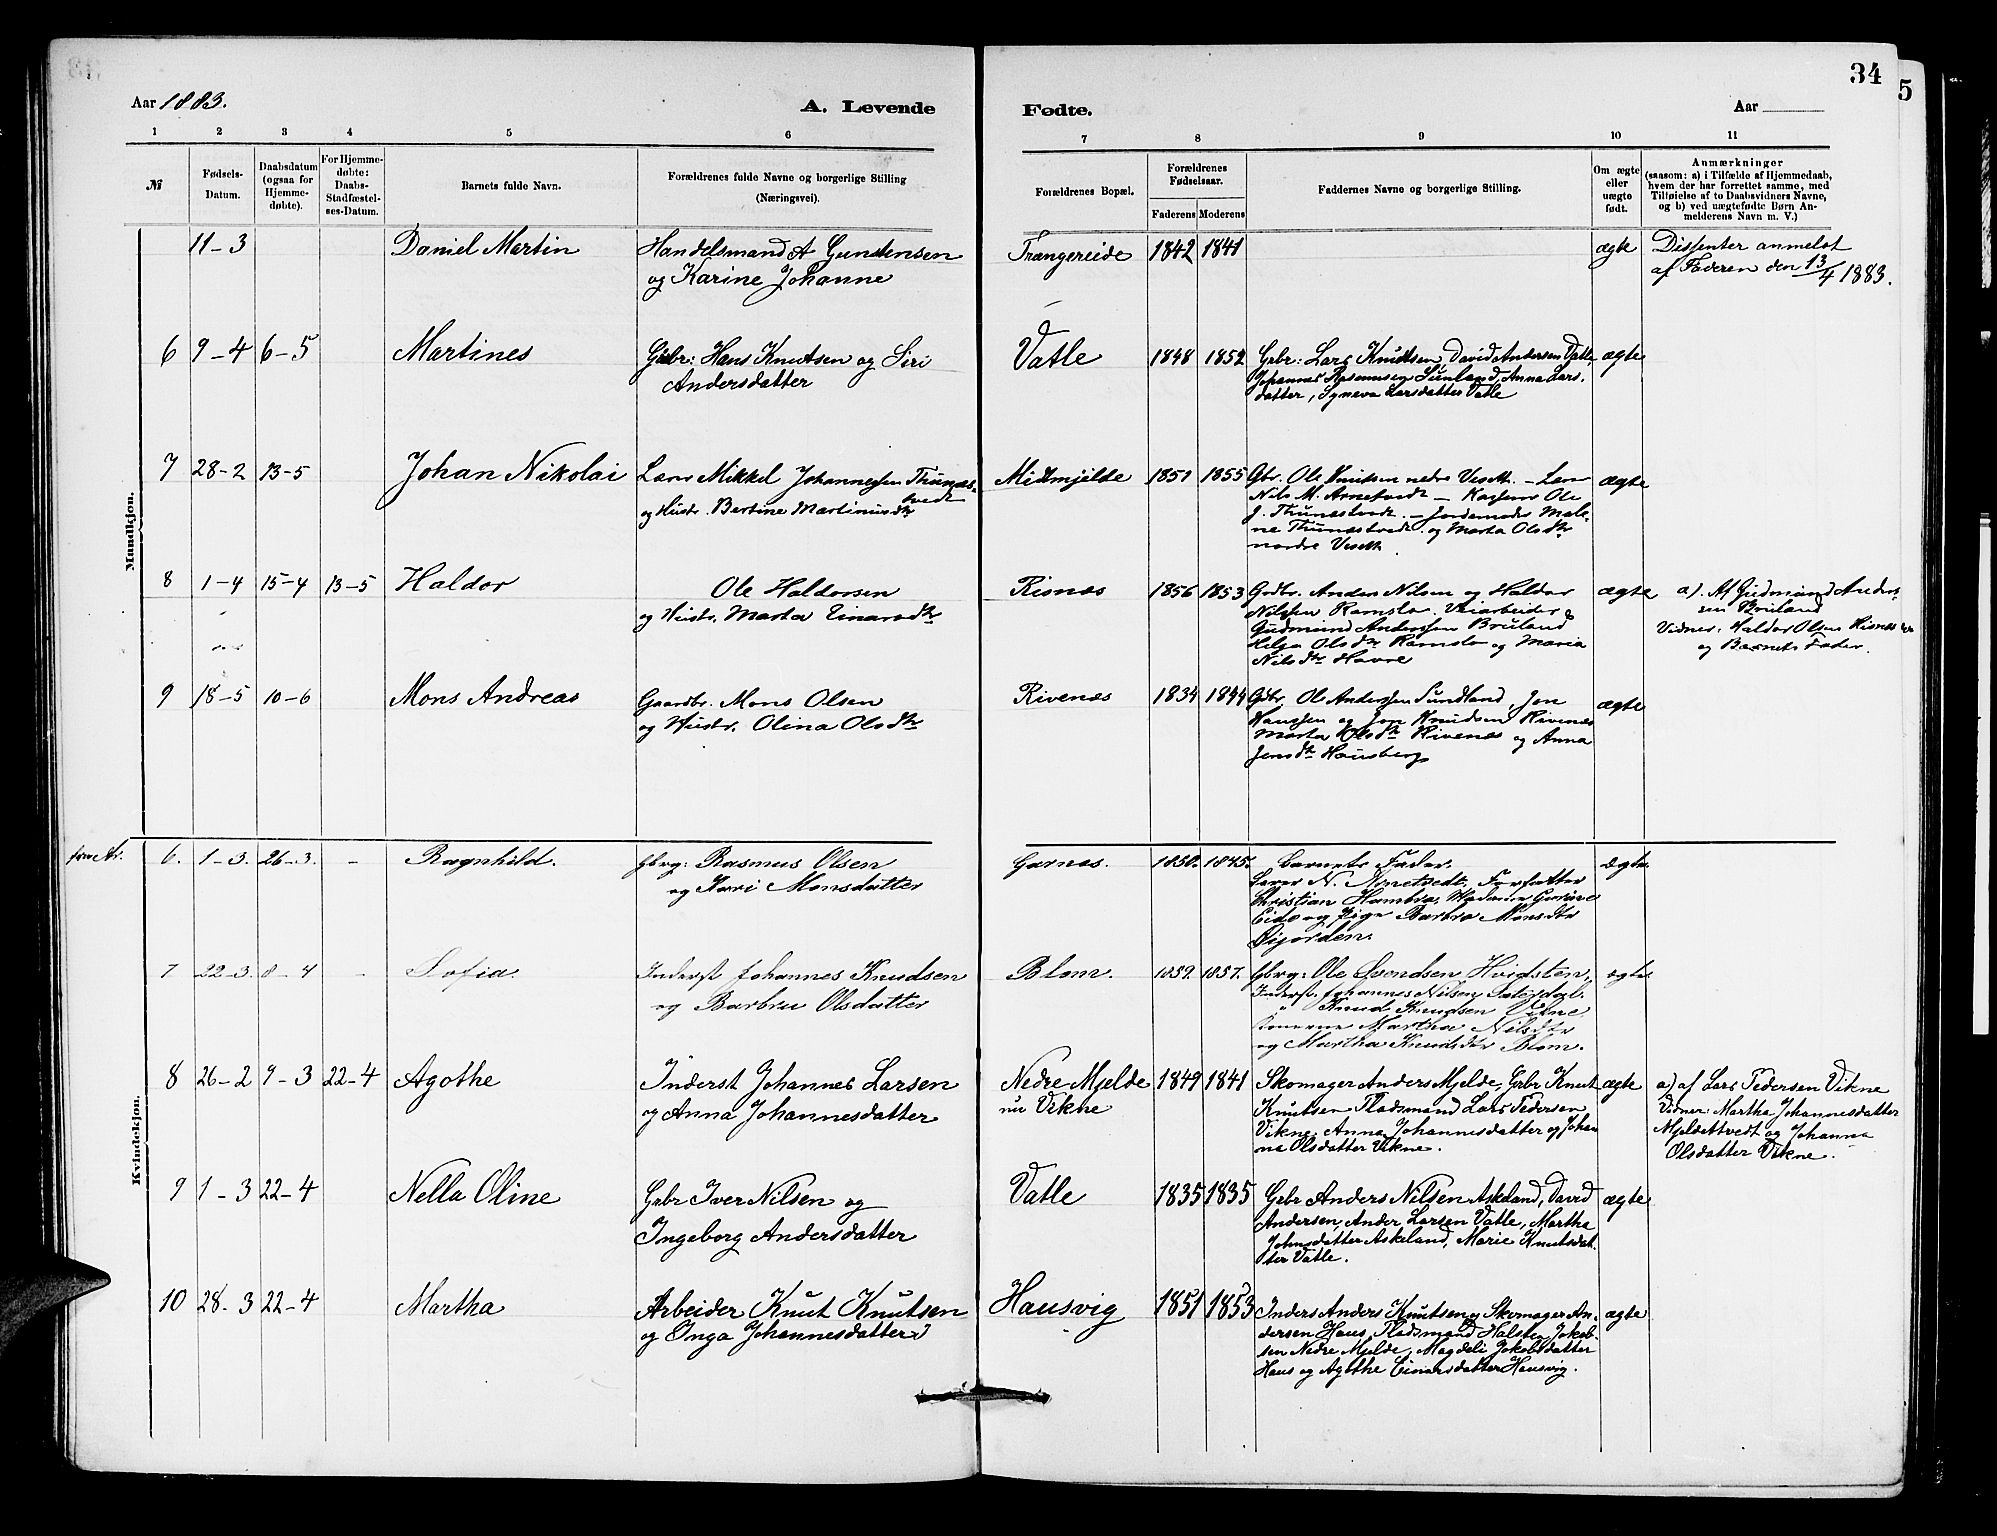 34
5
Aar 1883.
A. Levende
Fødte.
Aar
1 2 3 4 5 6 7 8 9 10 11
№
Fødsels-
Datum.
Daabsdatum
(ogsaa for
Hjemme-
døbte).
For Hjemme-
døbte:
Daabs-
Stadfæstel-
ses-Datum.
Barnets fulde Navn.
Forældrenes fulde Navne og borgerlige Stilling
(Næringsvei).
Forældrenes Bopæl.
Forældrenes
Fødselsaar.
Faderens Moderens
Faddernes Navne og borgerlige Stilling.
Om ægte
eller
uægte
født.
Anmærkninger
(saasom: a) i Tilfælde af Hjemmedaab,
hvem der har forrettet samme, med
Tilføielse af to Daabsvidners Navne,
og b) ved uægtefødte Børn An-
melderens Navn m. V.)
Mandkjøn.
11-3
Daniel Martin
Handelsmand A Gundersen
og Karine Johanne
Trængereide
1842 1841
ægte
Dissenter anmeldt
af Faderen den 13/4 1883.
6 9-4 6-5
Martines
Grbr: Hans Knutsen og Siri
Andersdatter
Vatle
1848 1852
Grbr: Lars Knudtsen, David Andersen Vatle,
Johannes Rasmussen Sunland, Anna Lars.
datter, Synneva Larsdatter Vatle
ægte
7 28-2 13-5
Johan Nikolai
Lærer Mikkel Johannessen Thunæs-
tvedt
og Hustr. Bertine Martinusdtr
Midtmjelde
1851 1855
Gbr. Ole Knutsen nedre Veseth - Lærer
Nils M. Arnetvedt - Ole
J. Thunæstvedt. - Jordemoder Male-
ne Thunæstvedt og Marta Olsdtr
nordre Veseth
ægte
8 1-4 15-4 13-5
Haldor
Ole Haldorsen
og Hustr. Marta Einarsdtr
Risnæs
1856 1853
Grdbr. Anders Nilsen og Haldor
Nilssen Ramslo. Veiarbeider
Gudmund Anderssen Bruland
Helga Olsdtr Ramslo og Maria
Nilsdtr Havre
ægte
a). Af Gudmund Anders-
sen Bruland
Vidner: Haldor Olsen Risnæs
og Barnets Fader.
9 18-5 10-6
Mons Andreas
Gaardbr. Mons Olsen
og Hustr. Olina Olsdtr
Rivenæs
1834 1844
Gdbr. Ole Anderssen Sundland, Jon
Hanssen og Jon Knudsen Rivenæs
Marta Olsdtr Rivenæs og Anna
Jensdtr Hausberg
ægte
Kvindekjøn.
6. 1-3. 26-3. -
Ragnhild.
Gbrg: Rasmus Olsen
og Kari Monsdatter
Garnæs.
1850. 1845.
Barnets Fader.
Lærer N. Arnetvedt. Forfatter
Christian Hambro, Madame Gurine
Eide og Pige Barbro Monsdtr
Øijorden.
ægte.
7 22-3. 8-4 -
Sofia
Inderst Johannes Knudsen
og Barbru Olsdatter
Blom.
1859. 1857.
Gbrg: Ole Svendsen Hvidsten,
Inderst. Johannes Nilsen
" Knud Knudsen Vikne
Konerne Martha Nilsdtr
og Martha Knudsdtr Blom.
ægte
8 26-2 9-3 22-4
Agothe
Inderst Johannes Larsen
og Anna Johannesdatter
Nedre Mjelde
nu Vikne
1849 1841
Skomager Anders Mjelde, Grbr Knut
Knutsen Pladsmand Lars Pedersen
Vikne, Anna Johannesdatter og Johan
na Olsdatter Vikne.
ægte
a) af Lars Pedersen Vikne
Vidner: Martha Johannesdatter
Mjeldettvedt og Johanna
Olsdatter Vikne.
9 1-3 22-4
Nella Oline
Grbr Iver Nilsen og
Ingeborg Andersdatter
Vatle
1835 1835
Grbr Anders Nilsen Askeland, David
Andersen, Ander Larsen Vatle, Martha
Johnsdatter Askeland, Marie Knutsdat-
ter Vatle.
ægte
10 28-3 22-4
Martha
Arbeider Knut Knutsen
og Onga Johannesdatter
Hausvig
1851 1853
Inders Anders Knutsen, Skomager An-
dersen Haus, Pladsmand Halsten Jokob-
sen Nedre Mjelde, Magdeli Jokobsdatter
Haus og Agothe Einarsdatter Hausvig.
ægte